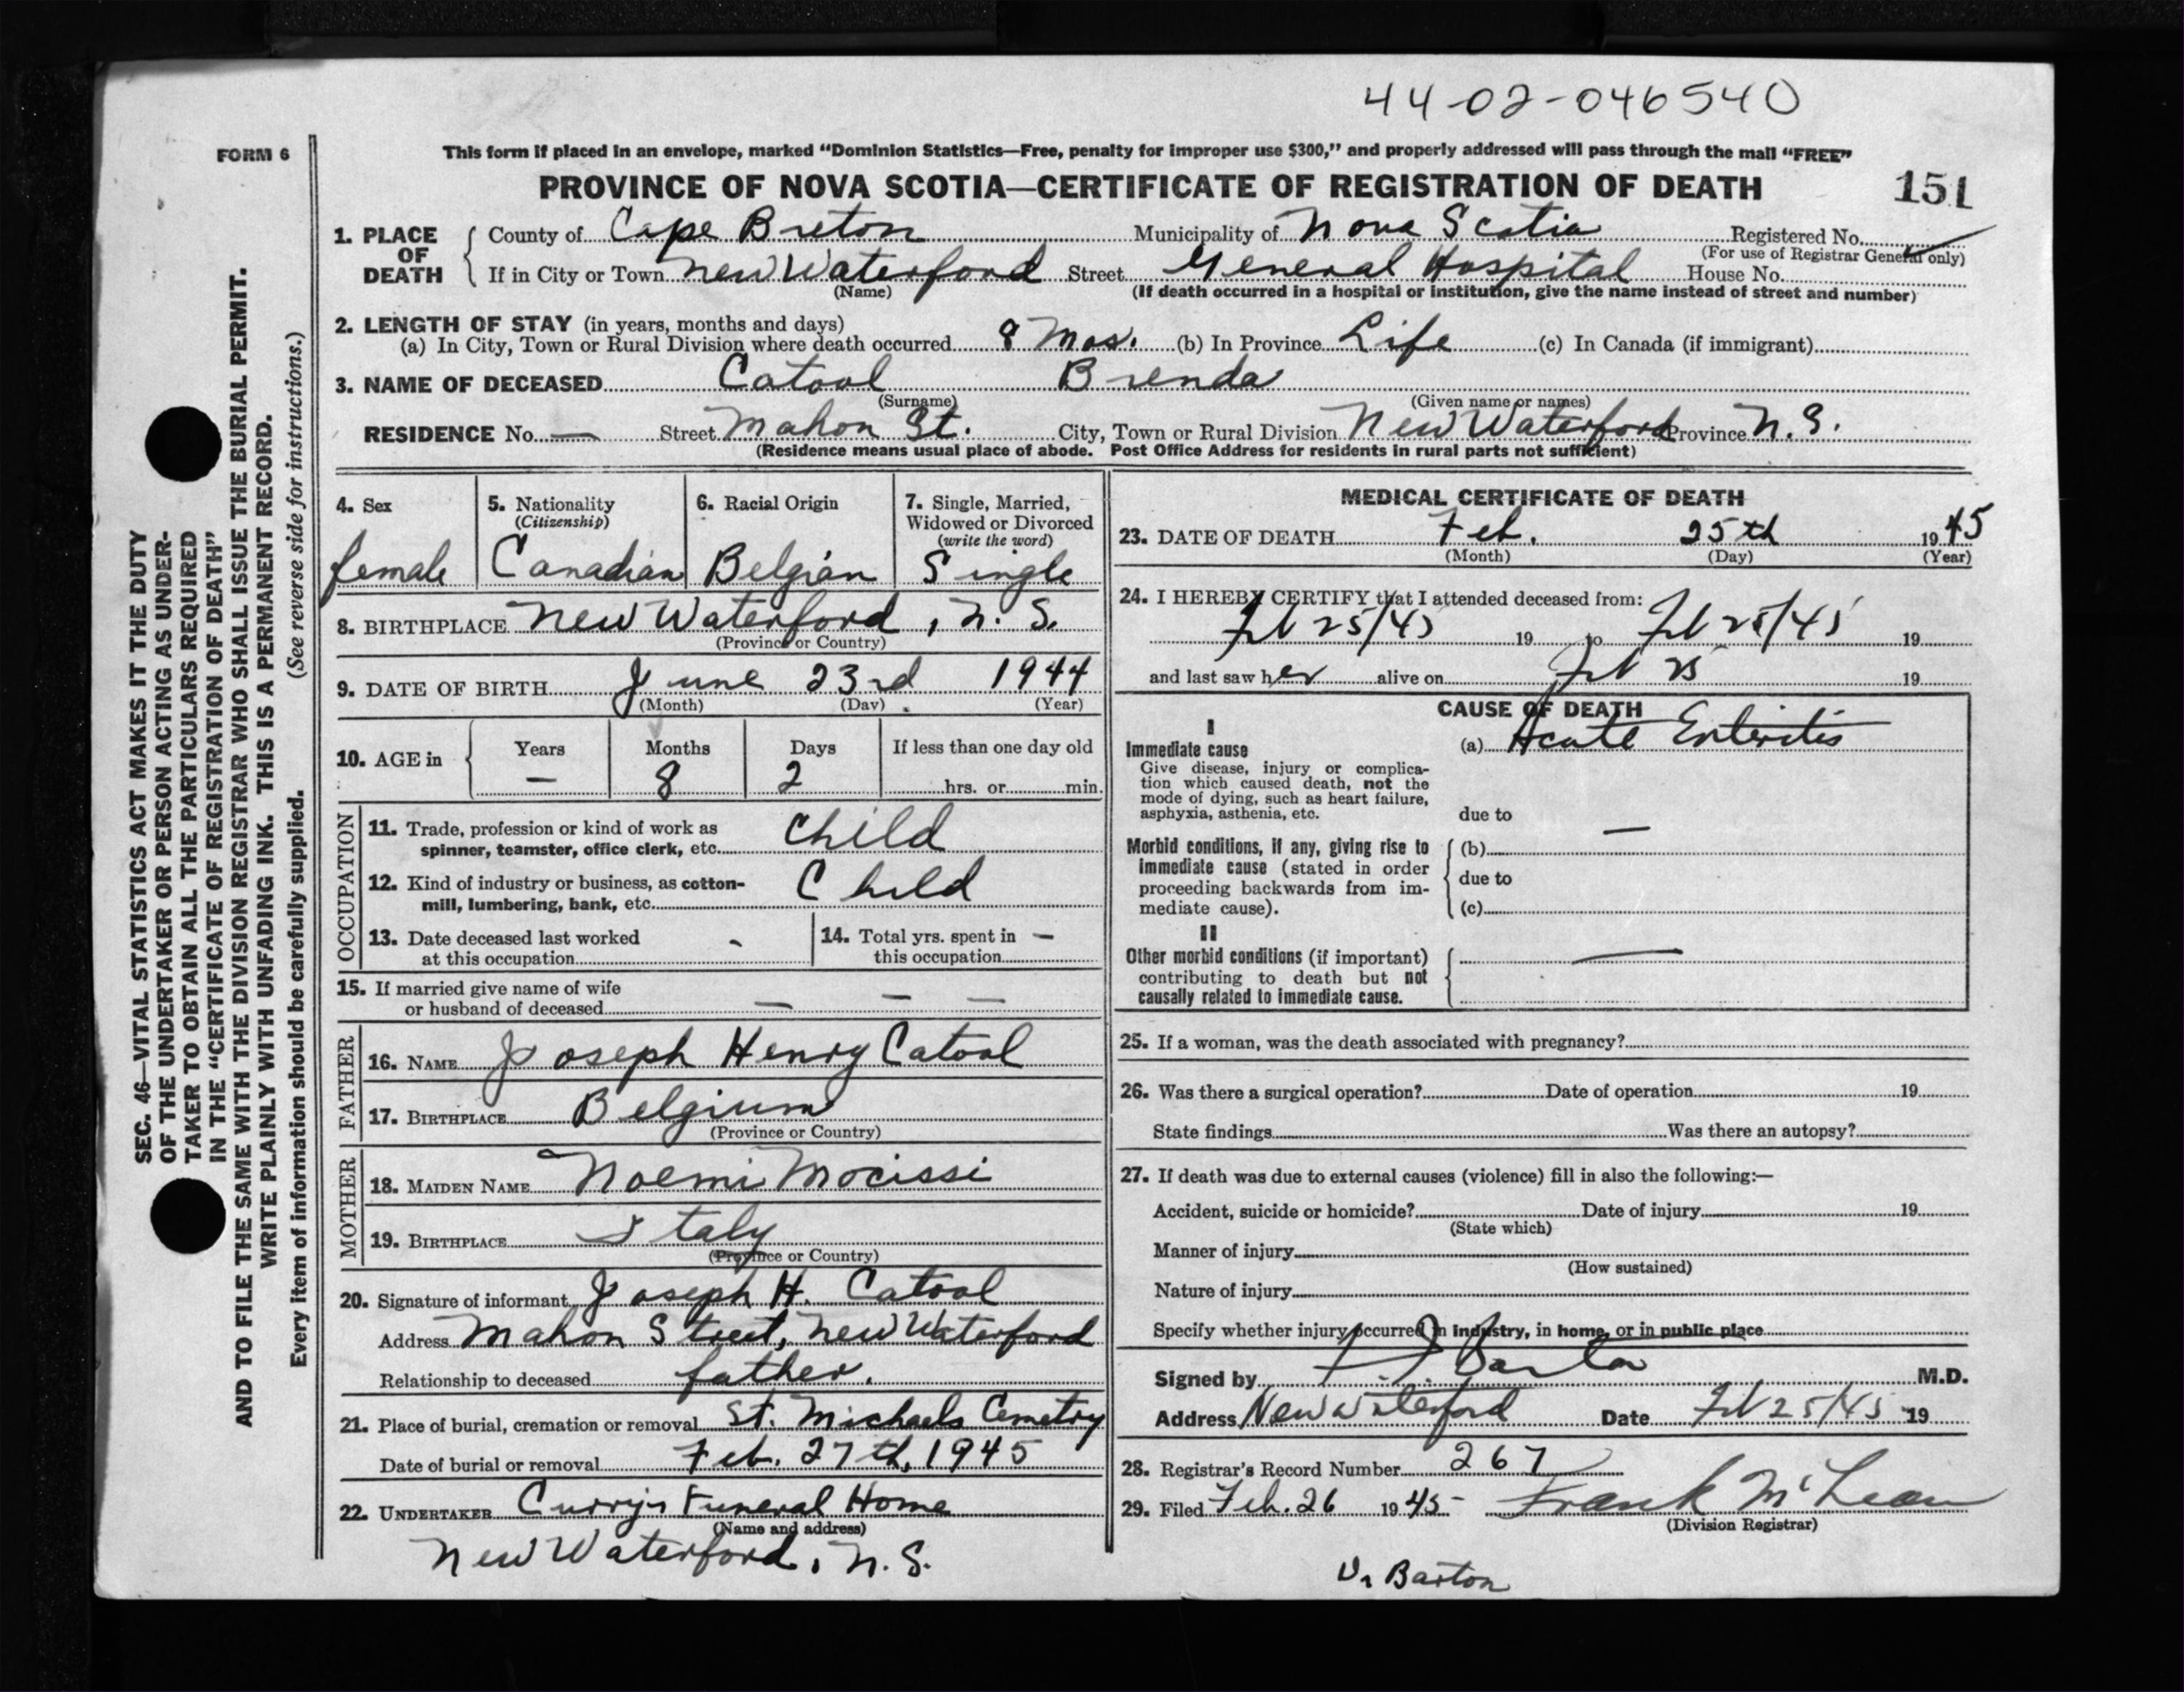 44-02-046540
FORM 6
This form if placed in an envelope, marked “Dominion Statistics—Free, penalty for improper use $300,” and properly addressed will pass through the mail “FREE”
PROVINCE OF NOVA SCOTIA—CERTIFICATE OF REGISTRATION OF DEATH
151
1. PLACE OF DEATH
County of Cape Breton Municipality of Nova Scotia Registered No.
(For use of Registrar General only)
If in City or Town New Waterford Street General Hospital House No.
(Name) (If death occurred in a hospital or institution, give the name instead of street and number)
2. LENGTH OF STAY (in years, months and days)
(a) In City, Town or Rural Division where death occurred 8 Mos. (b) In Province Life (c) In Canada (if immigrant)
3. NAME OF DECEASED Catool Brenda
(Surname) (Given name or names)
RESIDENCE No. — Street Mahon St. City, Town or Rural Division New Waterford Province N.S.
(Residence means usual place of abode. Post Office Address for residents in rural parts not sufficient)
4. Sex
female
5. Nationality
(Citizenship)
Canadian
6. Racial Origin
Belgian
7. Single, Married,
Widowed or Divorced
(write the word)
Single
8. BIRTHPLACE New Waterford, N.S.
(Province or Country)
9. DATE OF BIRTH June 23rd 1944
(Month) (Day) (Year)
10. AGE in
Years Months Days If less than one day old
— 8 2 hrs. or min.
OCCUPATION
11. Trade, profession or kind of work as
spinner, teamster, office clerk, etc. Child
12. Kind of industry or business, as cotton-
mill, lumbering, bank, etc. Child
13. Date deceased last worked
at this occupation -
14. Total yrs. spent in
this occupation —
15. If married give name of wife
or husband of deceased — — —
FATHER
16. NAME Joseph Henry Catool
17. BIRTHPLACE Belgium
(Province or Country)
MOTHER
18. MAIDEN NAME Noemi Mocissi
19. BIRTHPLACE Italy
(Province or Country)
20. Signature of informant Joseph H. Catool
Address Mahon Street, New Waterford
Relationship to deceased father.
21. Place of burial, cremation or removal St. Michaels Cemetry
Date of burial or removal Feb. 27th, 1945
22. UNDERTAKER Curry's Funeral Home
(Name and address)
New Waterford, N.S.
MEDICAL CERTIFICATE OF DEATH
23. DATE OF DEATH Feb. 25th 1945
(Month) (Day) (Year)
24. I HEREBY CERTIFY that I attended deceased from:
Feb 25/45 19 to Feb 25/45 19
and last saw her alive on Feb 25 19
CAUSE OF DEATH
I
Immediate cause
(a) Acute Enteritis
Give disease, injury or complica-
tion which caused death, not the
mode of dying, such as heart failure,
asphyxia, asthenia, etc.
due to
Morbid conditions, if any, giving rise to
immediate cause (stated in order
proceeding backwards from im-
mediate cause).
(b) —
due to
(c)
II
Other morbid conditions (if important)
contributing to death but not
causally related to immediate cause.
—
25. If a woman, was the death associated with pregnancy?
26. Was there a surgical operation? Date of operation 19
State findings Was there an autopsy?
27. If death was due to external causes (violence) fill in also the following:—
Accident, suicide or homicide? Date of injury 19
(State which)
Manner of injury
(How sustained)
Nature of injury
Specify whether injury occurred in industry, in home, or in public place
Signed by Barton M.D.
Address New Waterford Date Feb 25/45 19
28. Registrar's Record Number 267
29. Filed Feb. 26 1945 Frank McLean
(Division Registrar)
Dr Barton
SEC. 46—VITAL STATISTICS ACT MAKES IT THE DUTY
OF THE UNDERTAKER OR PERSON ACTING AS UNDER-
TAKER TO OBTAIN ALL THE PARTICULARS REQUIRED
IN THE “CERTIFICATE OF REGISTRATION OF DEATH”
AND TO FILE THE SAME WITH THE DIVISION REGISTRAR WHO SHALL ISSUE THE BURIAL PERMIT.
WRITE PLAINLY WITH UNFADING INK. THIS IS A PERMANENT RECORD.
Every item of information should be carefully supplied. (See reverse side for instructions.)